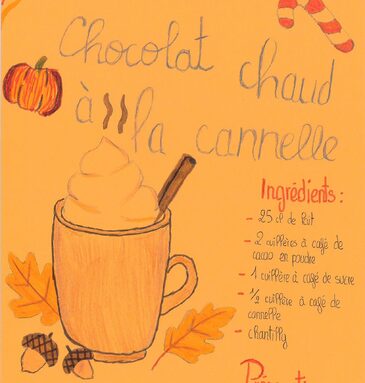 Chocolat chaud
à la cannelle
Ingrédients :
- 25 cl de lait
- 2 cuillères à café de
cacao en poudre
- 1 cuillère à café de sucre
- 1/2 cuillère à café de
cannelle
- chantilly